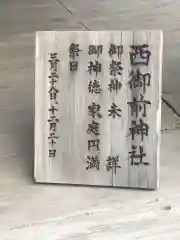 西御前神社
御祭神 未詳
御神徳 家庭円満
祭日
三月二十八日、十二月二十日